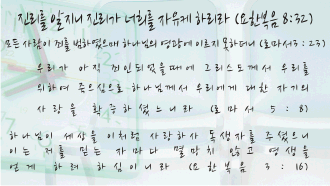 진리를 알지니 진리가 너희를 자유케 하리라 (요한복음 8:32)
모든 사람이 죄를 범하였으매 하나님의 영광에 이르지 못하더니 (로마서 3:23)
우리가 아직 죄인 되었을 때에 그리스도께서 우리를
위하여 죽으심으로 하나님께서 우리에게 대한 자기의
사랑을 확증하셨느니라 (로마서 5:8)
하나님이 세상을 이처럼 사랑하사 독생자를 주셨으니
이는 저를 믿는 자마다 멸망치 않고 영생을
얻게 하려 하심이니라 (요한복음 3:16)